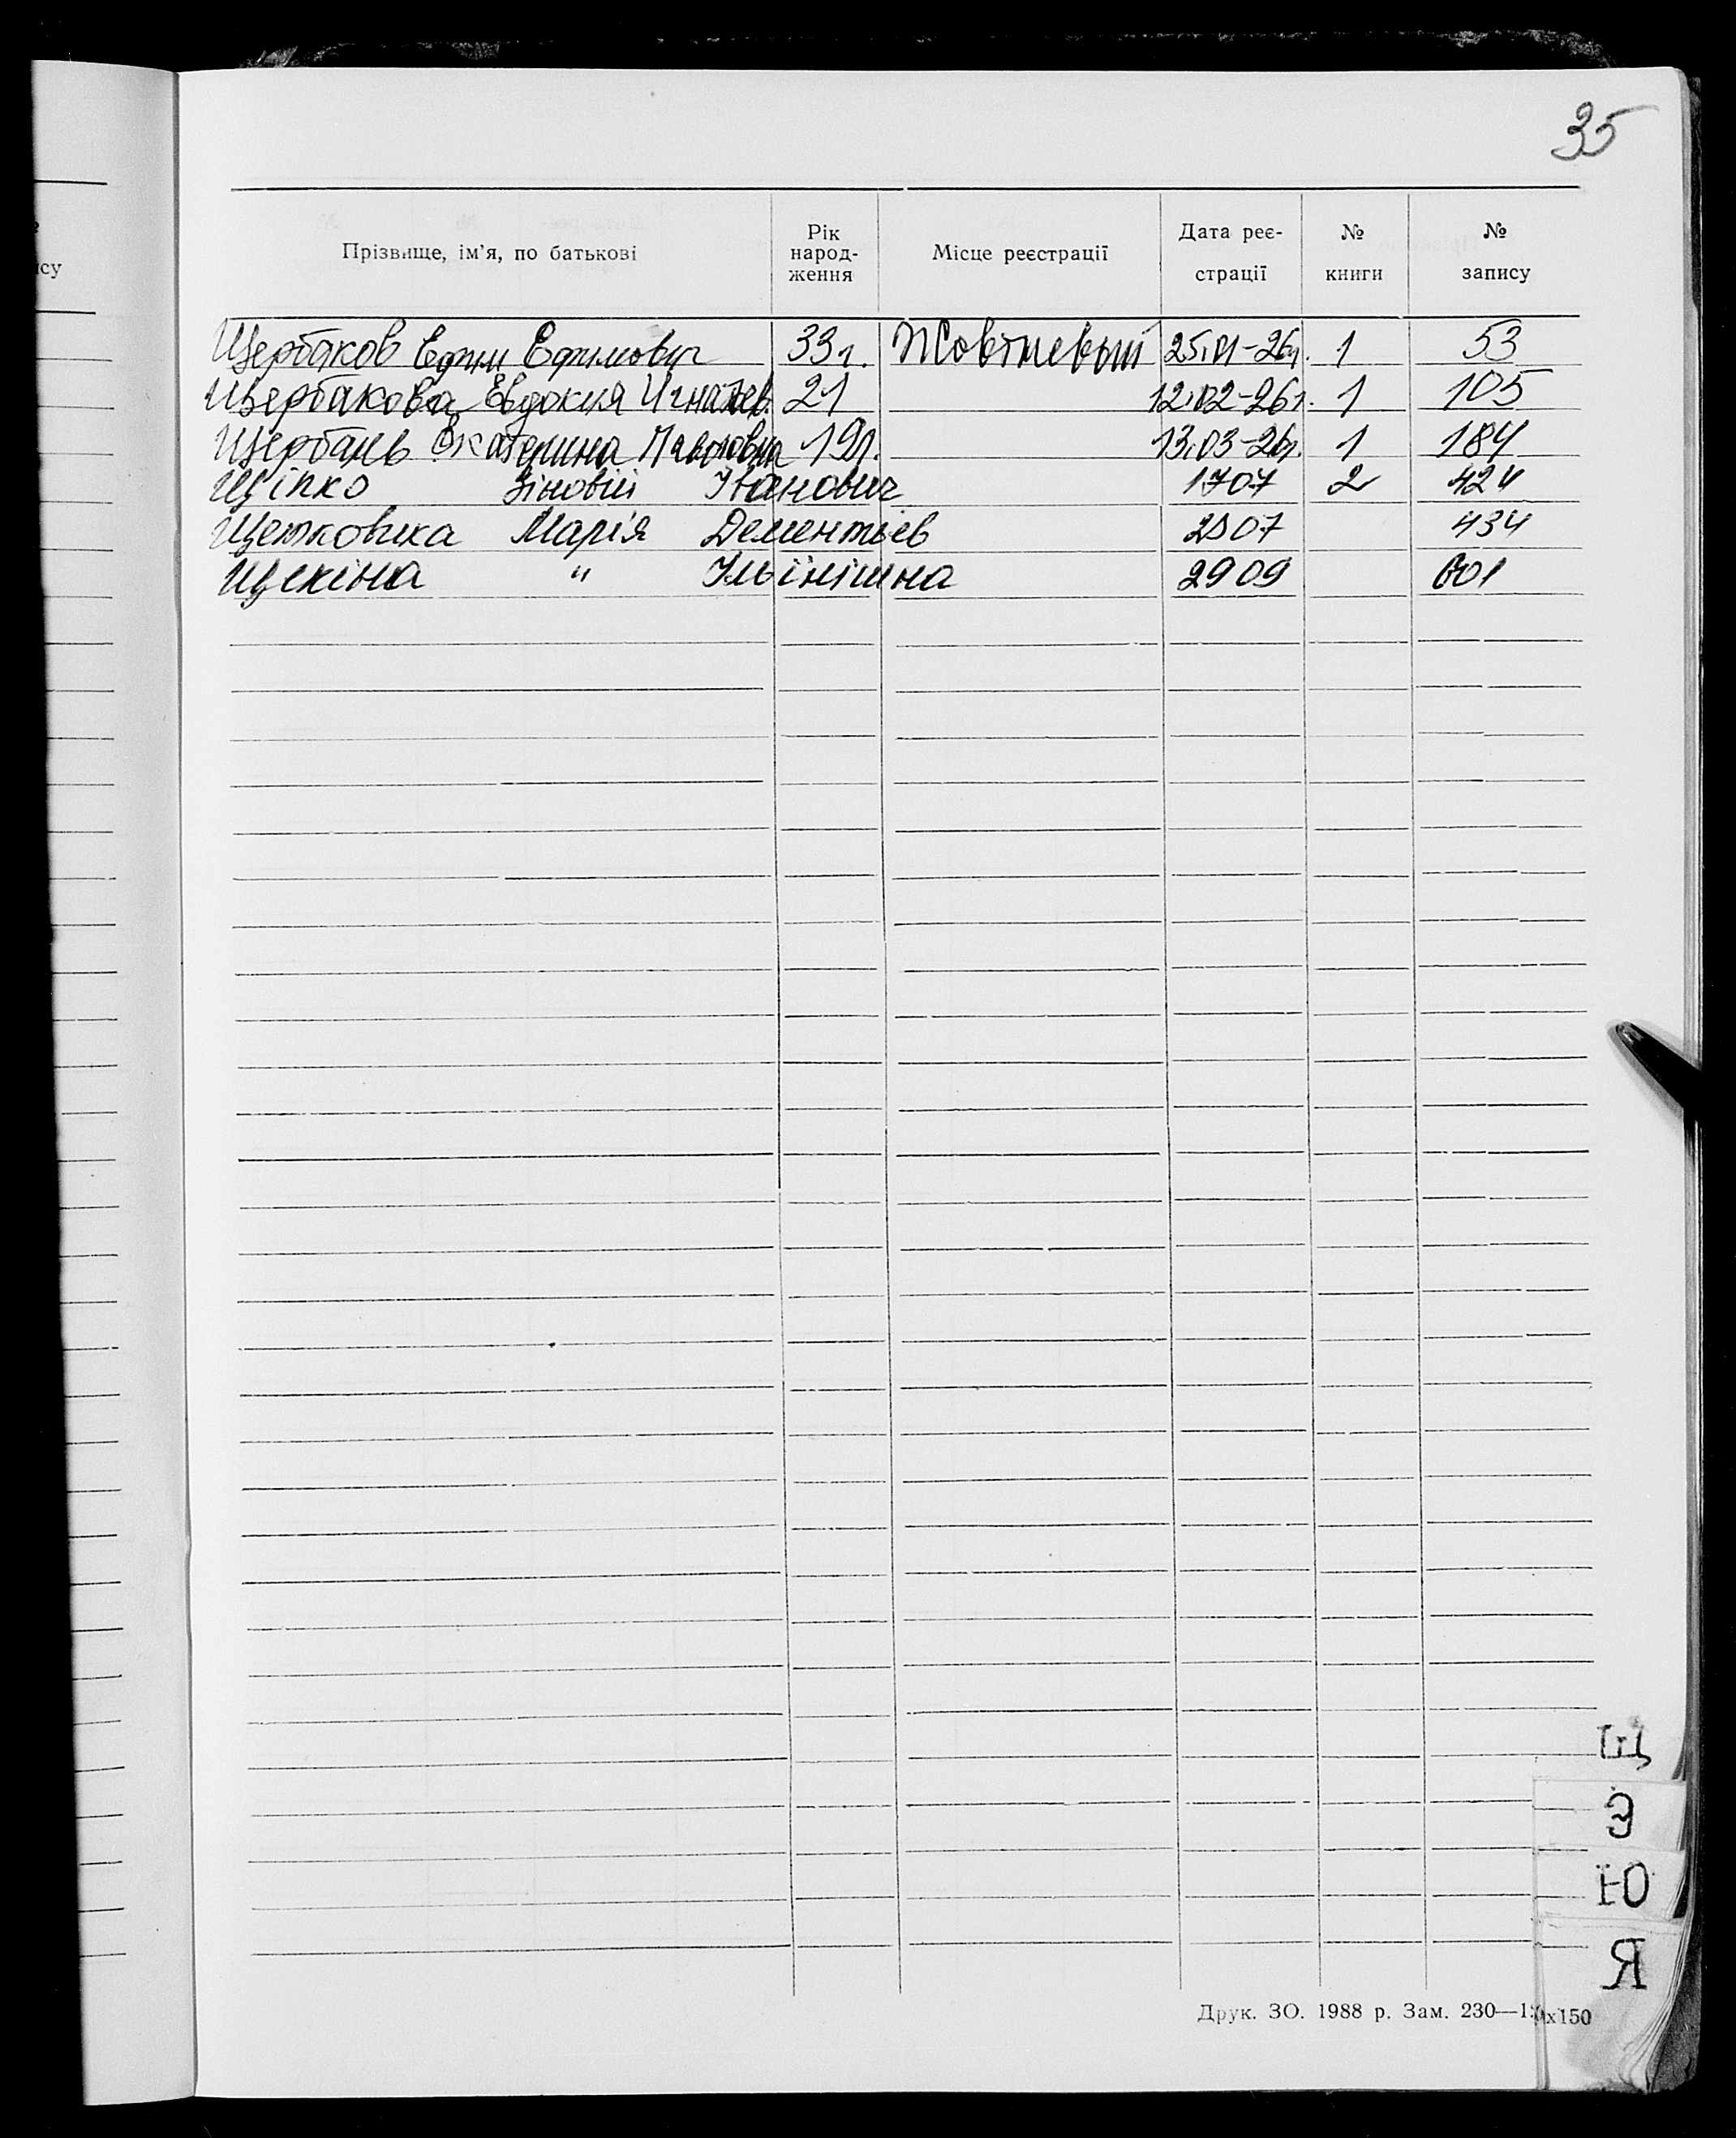 35
Прізвище, ім’я, по батькові Рік народ- ження Місце реєстрації Дата реє- страції № книги № запису
Щербаков Ефим Ефимович 33г. Жовтневый 25.01-26г. 1 53
Щербакова Евдокия Игнатьев. 21 12.02-26г. 1 105
Щербань Екатерина Павловна 19г. 13.03-26г. 1 184
Щіпко Зіновій Іванович 1707 2 424
Марія Дементьев 2307 434
Щекіна " Ільїнішна 2909 601
Щ
Э
Ю
Я
Друк. ЗО. 1988 р. Зам. 230—1 0х150
ису